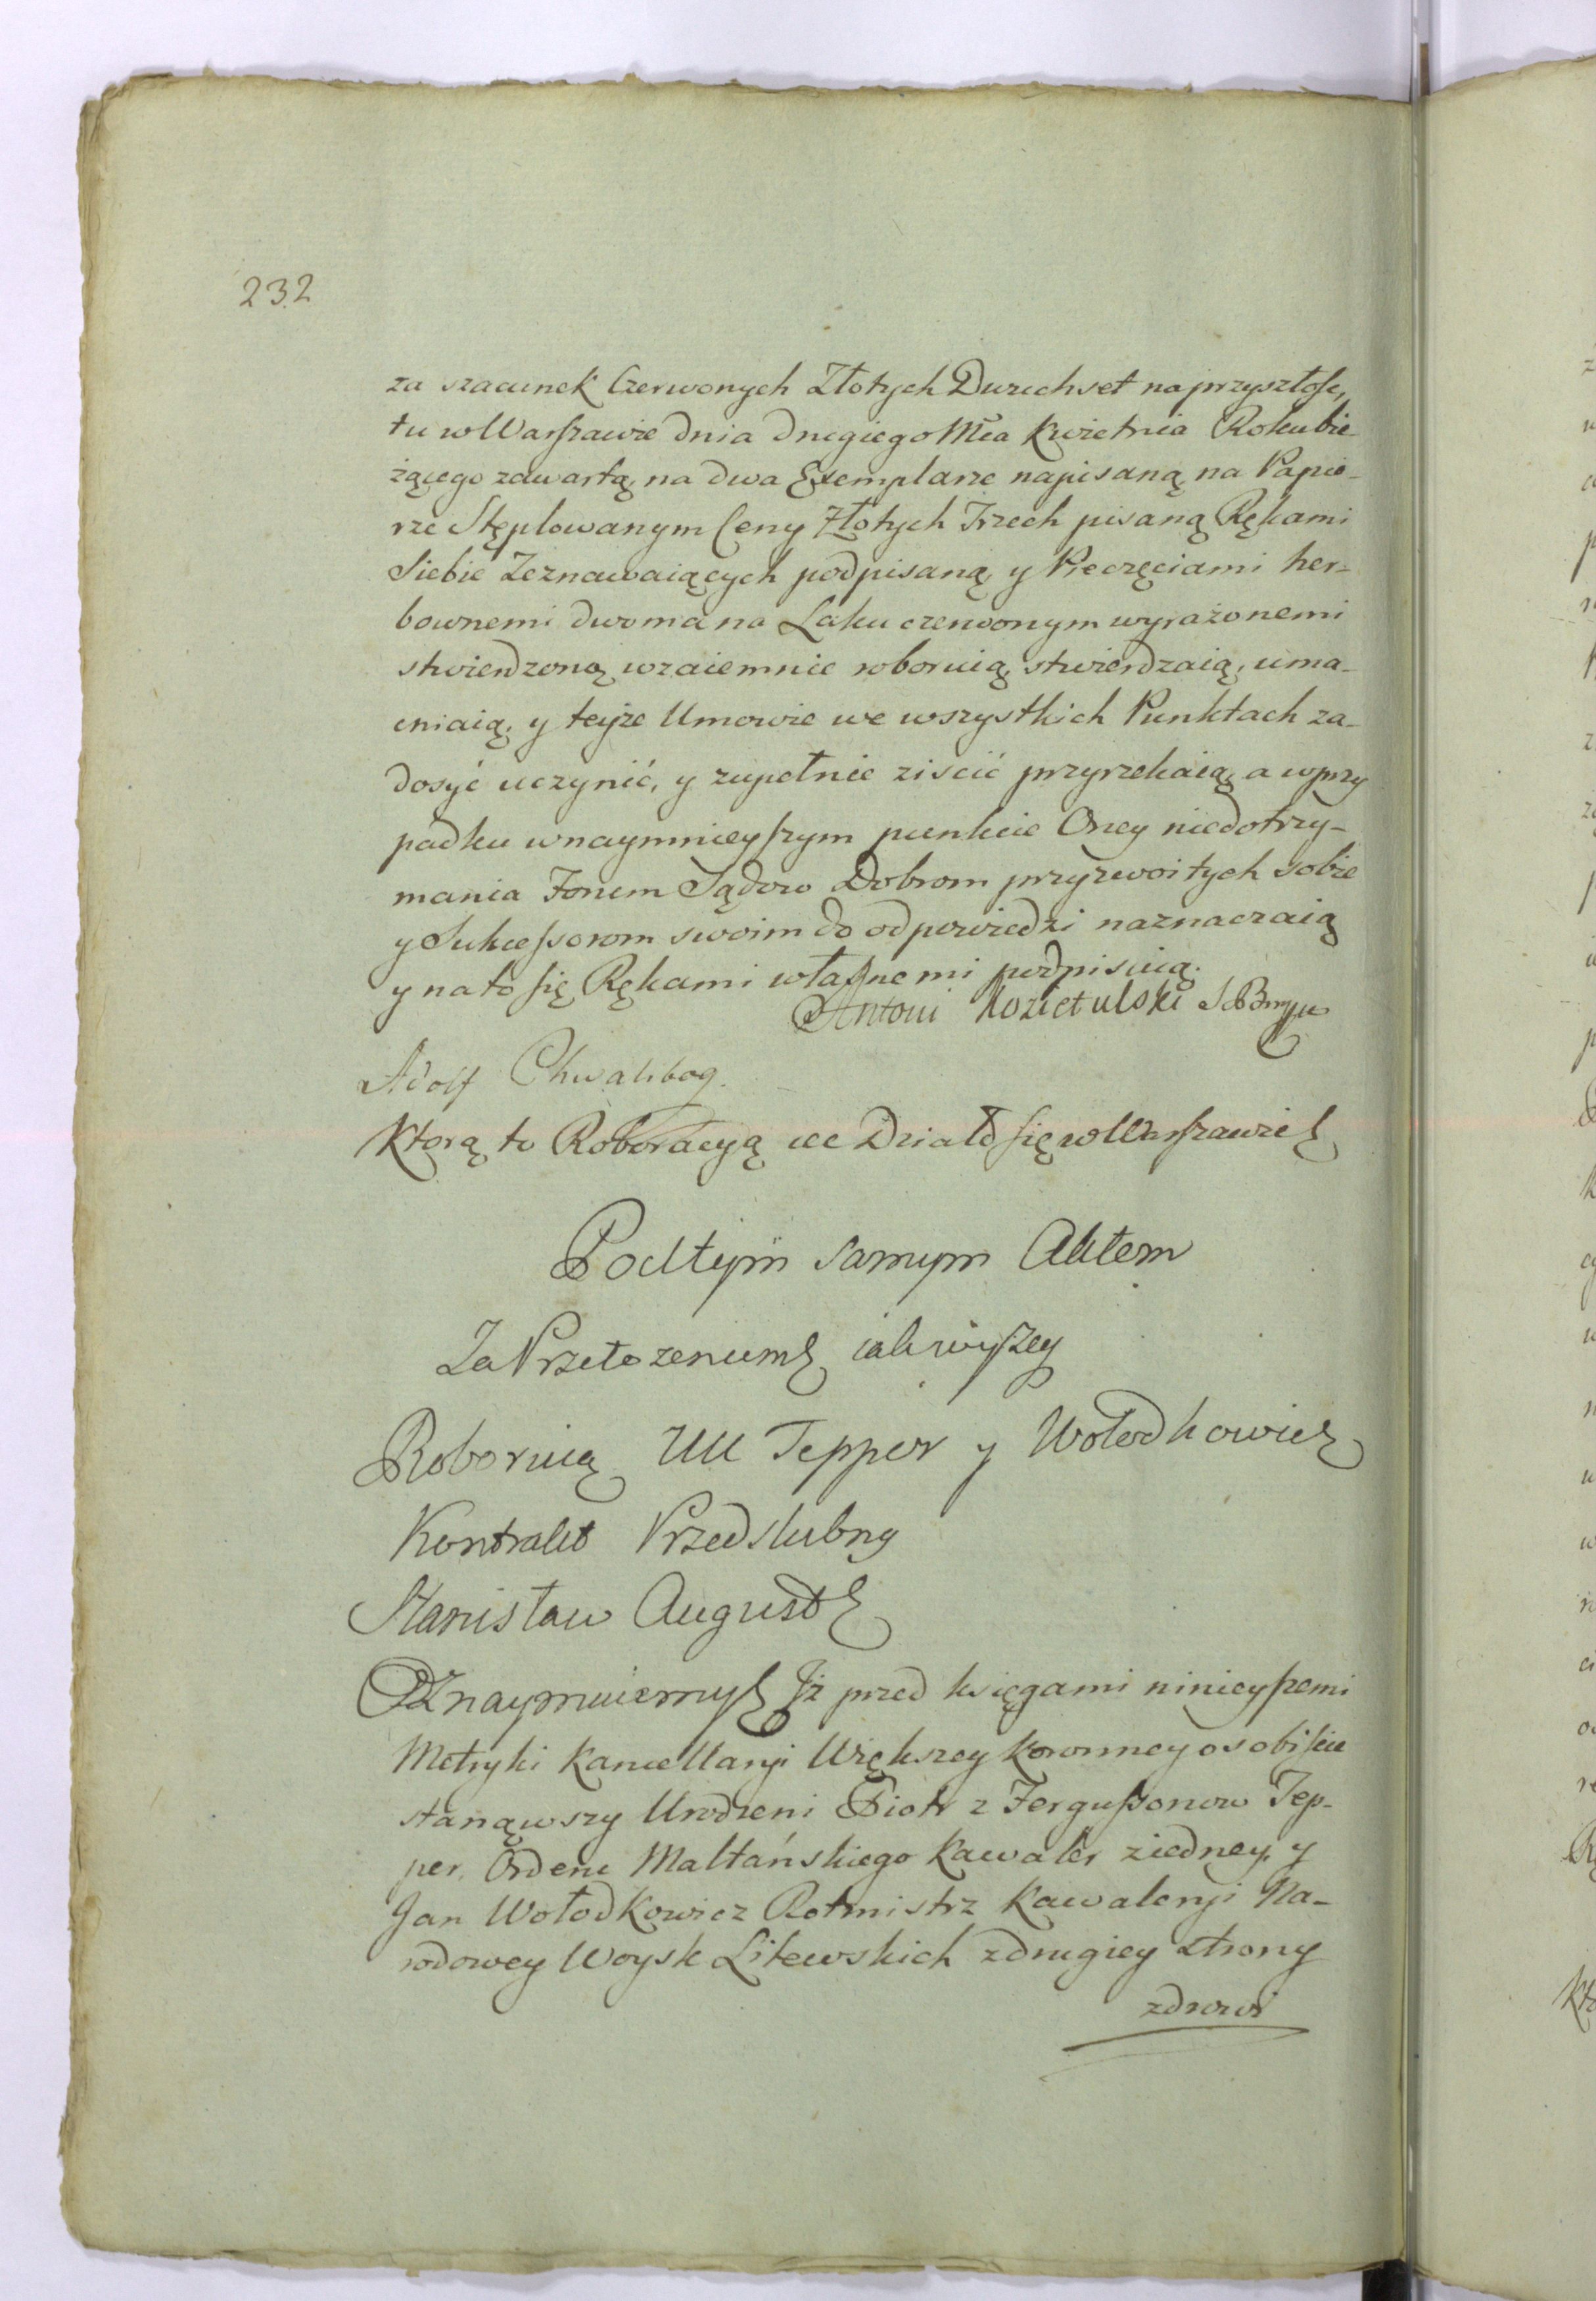 232
za szacunek Czerwonych Złotych Dwuchset na przyszłość,
tu w Warszawie dnia drugiego Mca Kwietnia Roku bie-
żącego zawartą, na dwa Exemplarze napisaną na Papie-
rze Stęplowanym Ceny Złotych Trzech pisaną Rękami
Siebie Zeznawaiących podpisaną, y Pieczęciami her-
bownemi dwoma na Laku czerwonym wyrażonemi
stwierdzoną wzaiemnie roboruią, stwierdzaią, uma-
cniaią, y teyże Umowie we wszystkich Punktach za-
dosyć uczynić, y zupełnie ziścić przyrzekaią, a w przy
padku w naymnieyszym punkcie Oney niedotrzy-
mania Forum Sądow Dobrom przyzwoitych sobie
y Sukcessorom swoim do odpowiedzi naznaczaią
y na to się Rękami własnemi podpisuią.
Antoni Kozietulski
Adolf Chwalibog.
Ktorą to Roboracyą etc Działo się w Warszawie
Pod tym samym Aktem
Za Przełozeniem iak wyszey
Roboruią UU Tepper y Wołodkowicz
Kontrakt Przedślubny
Stanisław August
Oznaymuiemy Iż przed księgami ninieyszemi
Metryki Kancellaryi Większey Koronney osobiście
stanąwszy Urodzeni Piotr z Fergussonow Tep-
per, Orderu Maltańskiego Kawaler z iedney, y
Jan Wołodkowicz Rotmistrz Kawaleryi Na-
rodowey Woysk Litewskich z drugiey strony
zdrowi